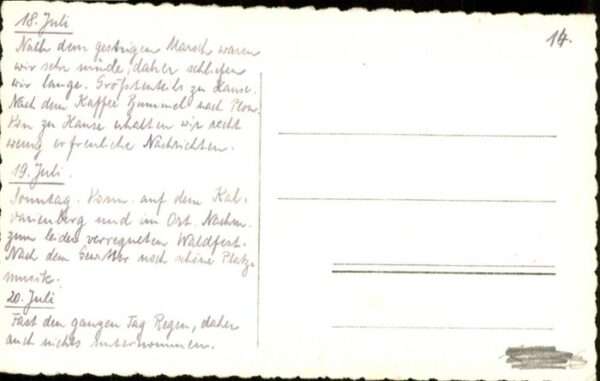 14.
18. Juli
Nach dem gestrigen Marsch waren
wir sehr müde, daher schliefen
wir lange. Größtenteils zu Hause.
Nach dem Kaffee Bummel nach
Von zu Hause erhalten wir recht
wenig erfreuliche Nachrichten.
19. Juli.
Sonntag. Vorm. auf dem Kal-
varienberg und im Ort. Nachm.
zum leider verregneten Waldfest.
Nach dem Gewitter noch schöne Platz-
musik.
20. Juli
Fast den ganzen Tag Regen, daher
auch nichts unternommen.